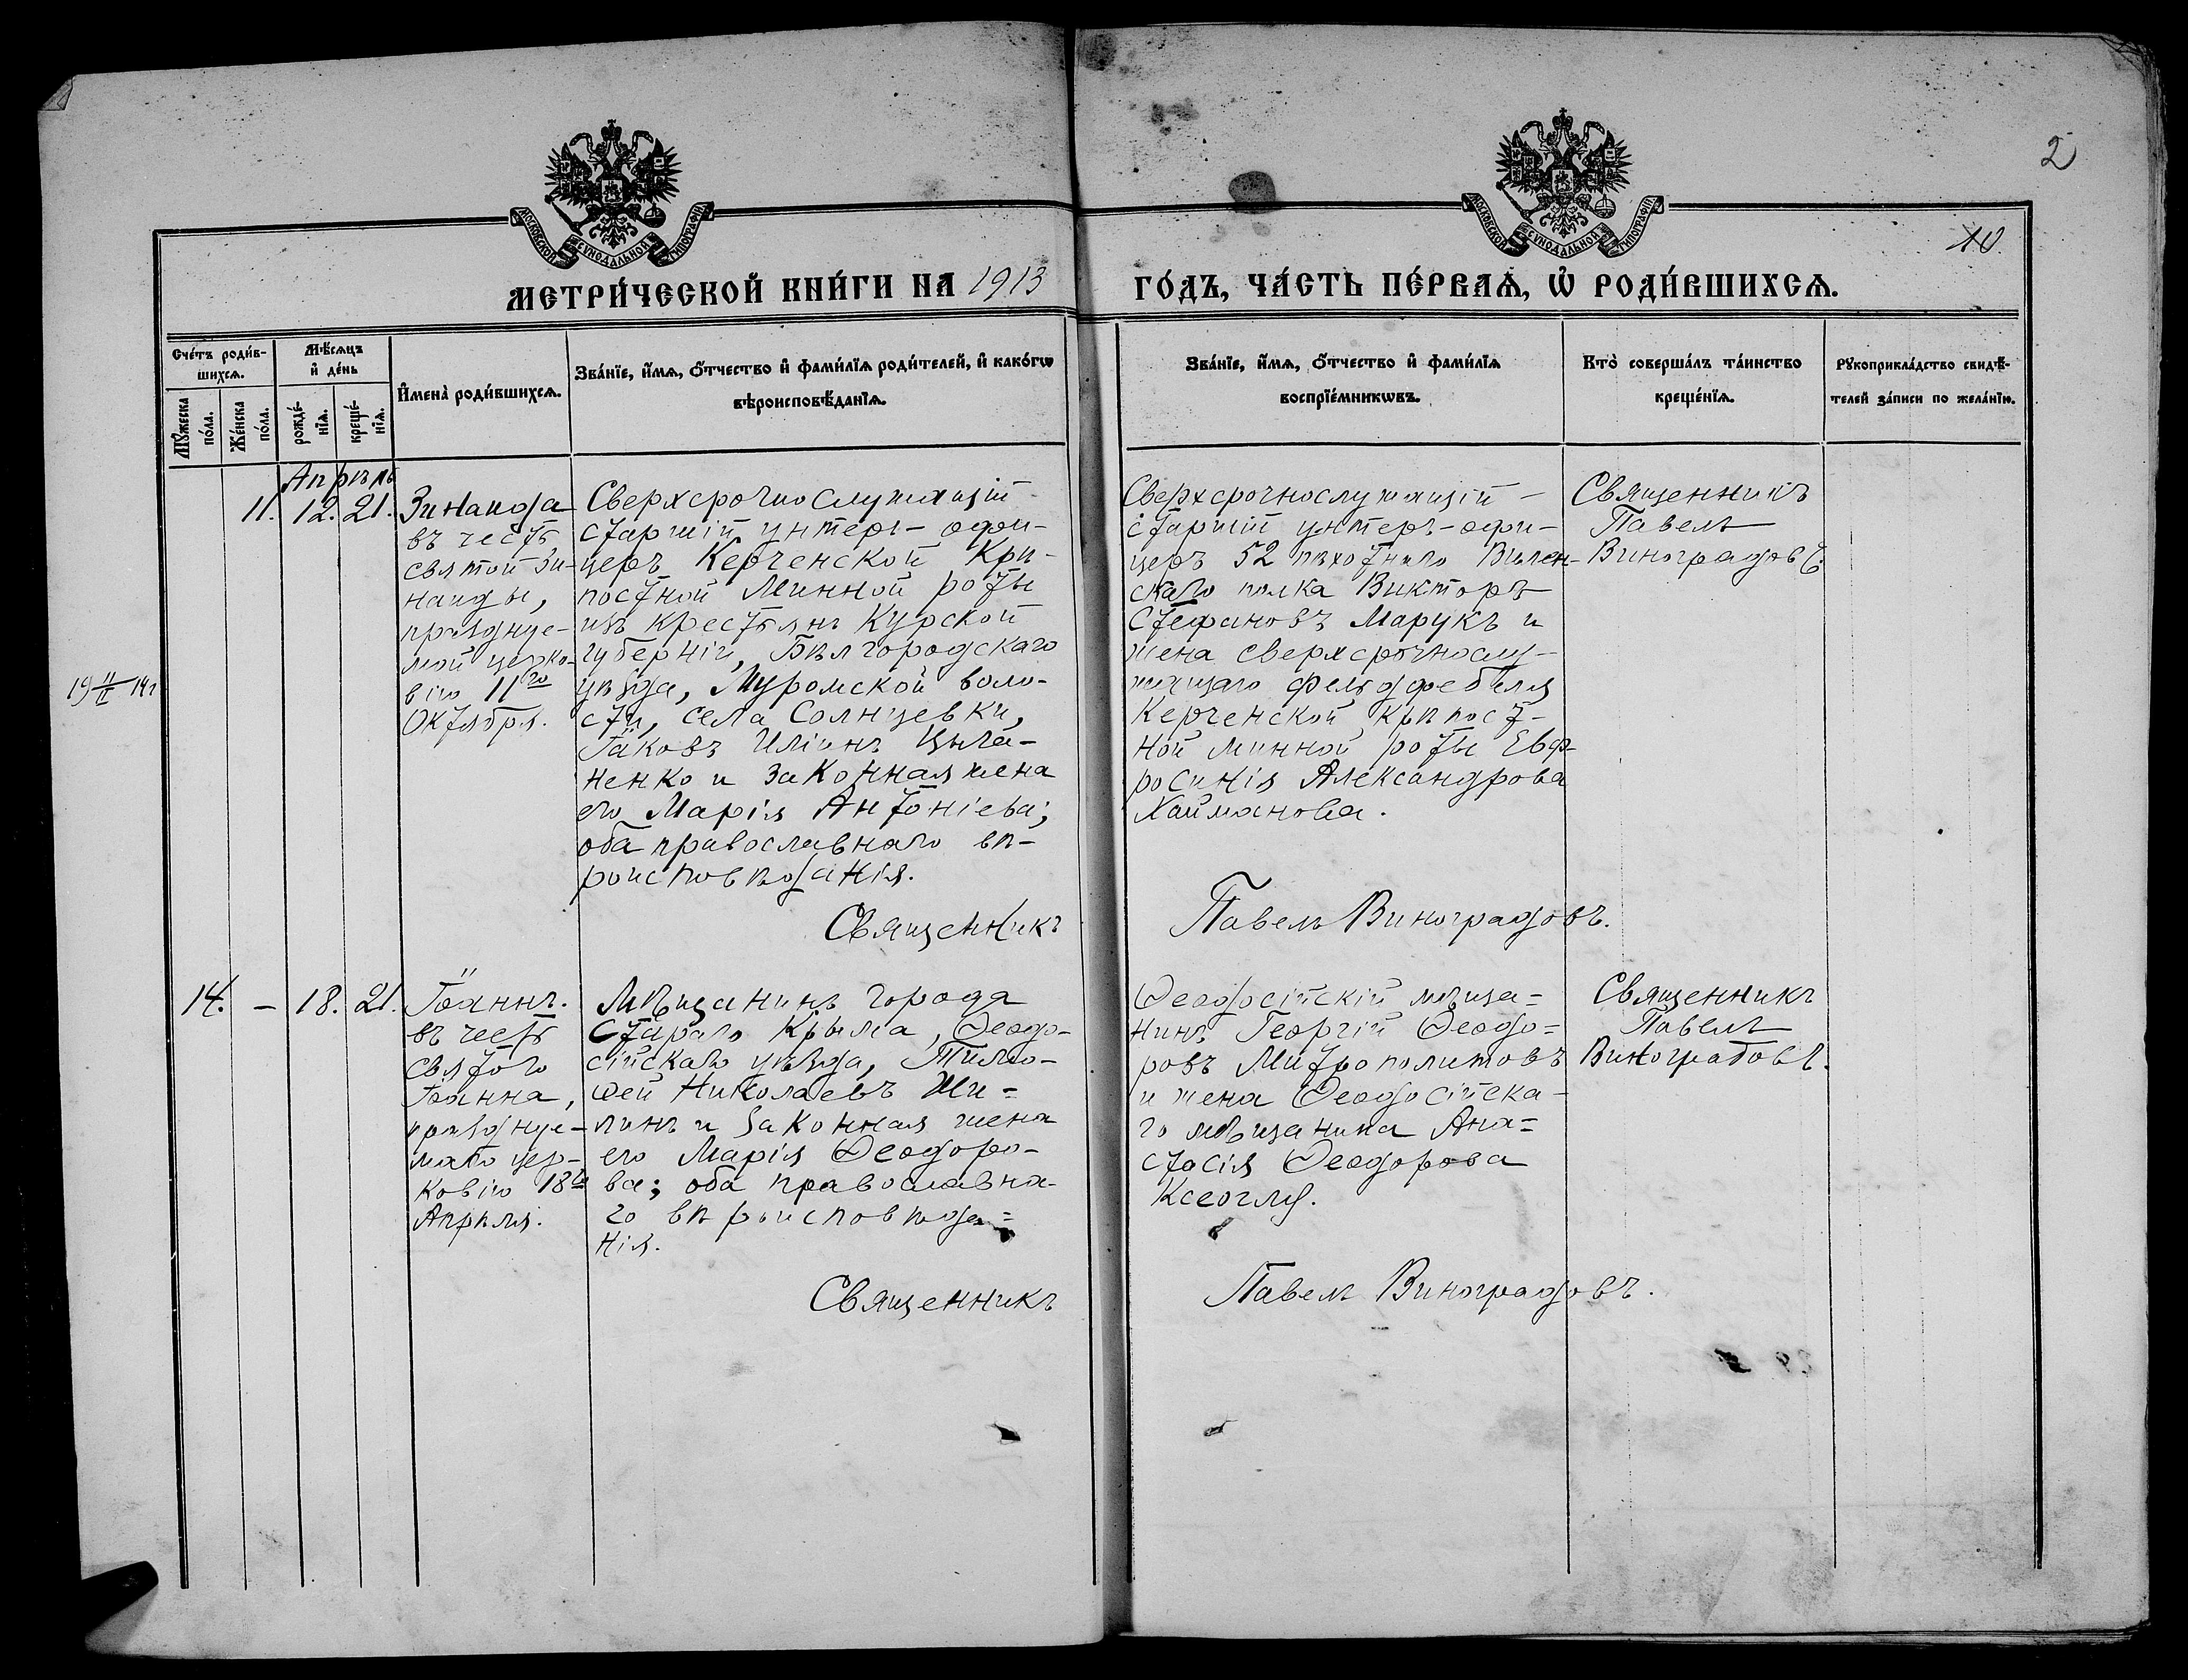 2
10.
МОСКОВСКОЙ СѴНОДАЛЬНОЙ ТИПОГРАФІИ
МОСКОВСКОЙ СѴНОДАЛЬНОЙ ТИПОГРАФІИ
МЕТРИ́ЧЕСКОЙ КНИ́ГИ НА 1913
ГО́ДЪ, ЧА́СТЬ ПЕ́РВАѦ, Ѡ҆ РОДИ́ВШИХСѦ.
Сче́тъ роди́в-
шихсѧ.
Мѣ́сѧцъ
и҆ де́нь
Мꙋ́жеска
по́ла.
Же́нска
по́ла.
рожде́-
нїѧ.
креще́-
нїѧ.
И҆мена̀ роди́вшихсѧ.
Зва́нїе, и҆́мѧ, ѻ҆́тчество и҆ фами́лїѧ роди́телей, и҆ како́гѡ
вѣроисповѣ́данїѧ.
Зва́нїе, и҆́мѧ, ѻ҆́тчество и҆ фами́лїѧ
воспрїе́мникѡвъ.
Кто̀ соверша́лъ та́инство
креще́нїѧ.
Рꙋкоприкла́дство свидѣ́-
телей за́писи по жела́нїю.
Апрѣль
11. 12. 21.
Зинаида
въ честь
святой Зи-
наиды,
празднуе-
мой церко-
вію 11го
Октября.
Сверхсрочнослужащій
старшій унтеръ-офи-
церъ Керченской Крѣ-
постной Минной роты
изъ крестьянъ Курской
губерніи, Бѣлгородскаго
уѣзда, Муромской воло-
сти, села Солнцевки,
Іаковъ Иліинъ Цыга-
ненко и законная жена
его Марія Антоніева;
оба православнаго вѣ-
роисповѣданія.
Священникъ
Сверхсрочнослужащій
старшій унтеръ-офи-
церъ 52 пѣхотнаго Вилен-
скаго полка Викторъ
Стефановъ Марукъ и
жена сверхсрочнослу-
жащаго фельдфебеля
Керченской крѣпост-
ной минной роты Евф-
росинія Александрова
Хайманова.
Павелъ Виноградовъ.
Священникъ
Павелъ
Виноградовъ.
14. – 18. 21.
Іоаннъ.
въ честь
святого
Іоанна,
празднуе-
маго цер-
ковію 18го
Апрѣля.
Мѣщанинъ города
Стараго Крыма, Ѳеодо-
сійскаго уѣзда, Тимо-
ѳей Николаевъ Жи=
линъ и законная жена
его Марія Ѳеодоро-
ва; оба православна-
го вѣроисповѣда=
нія.
Священникъ
Ѳеодосійскій мѣща=
нинъ Георгій Ѳеодо=
ровъ Митрополитовъ
и жена Ѳеодосійска-
го мѣщанина Ана=
стасія Ѳеодорова
Ксеоглу.
Павелъ Виноградовъ.
Священникъ
Павелъ
Виноградовъ.